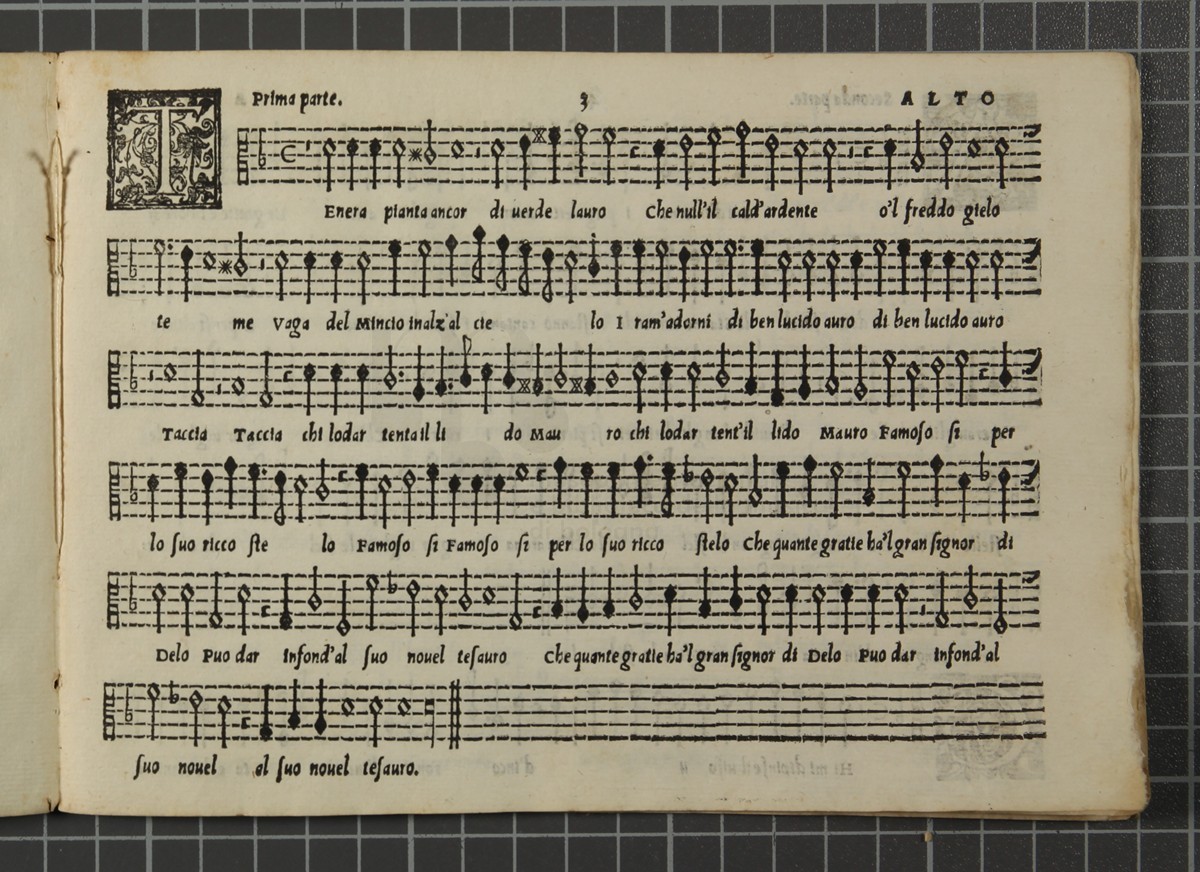 Prima parte. 3 ALTO
TEnera pianta ancor di uerde lauro Che null'il cald'ardente o'l freddo gielo
te me Vaga del Mincio inalz'al cie lo I ram'adorni di ben lucido auro di ben lucido auro
Taccia Taccia chi lodar tenta il li do Mau ro chi lodar tent'il lido Mauro Famoso si per
lo suo ricco ste lo Famoso si Famoso si per lo suo ricco stelo Che quante gratie ha'l gran signor di
Delo Puo dar infond'al suo nouel tesauro Che quante gratie ha'l gran signor di Delo Puo dar infond'al
suo nouel al suo nouel tesauro.